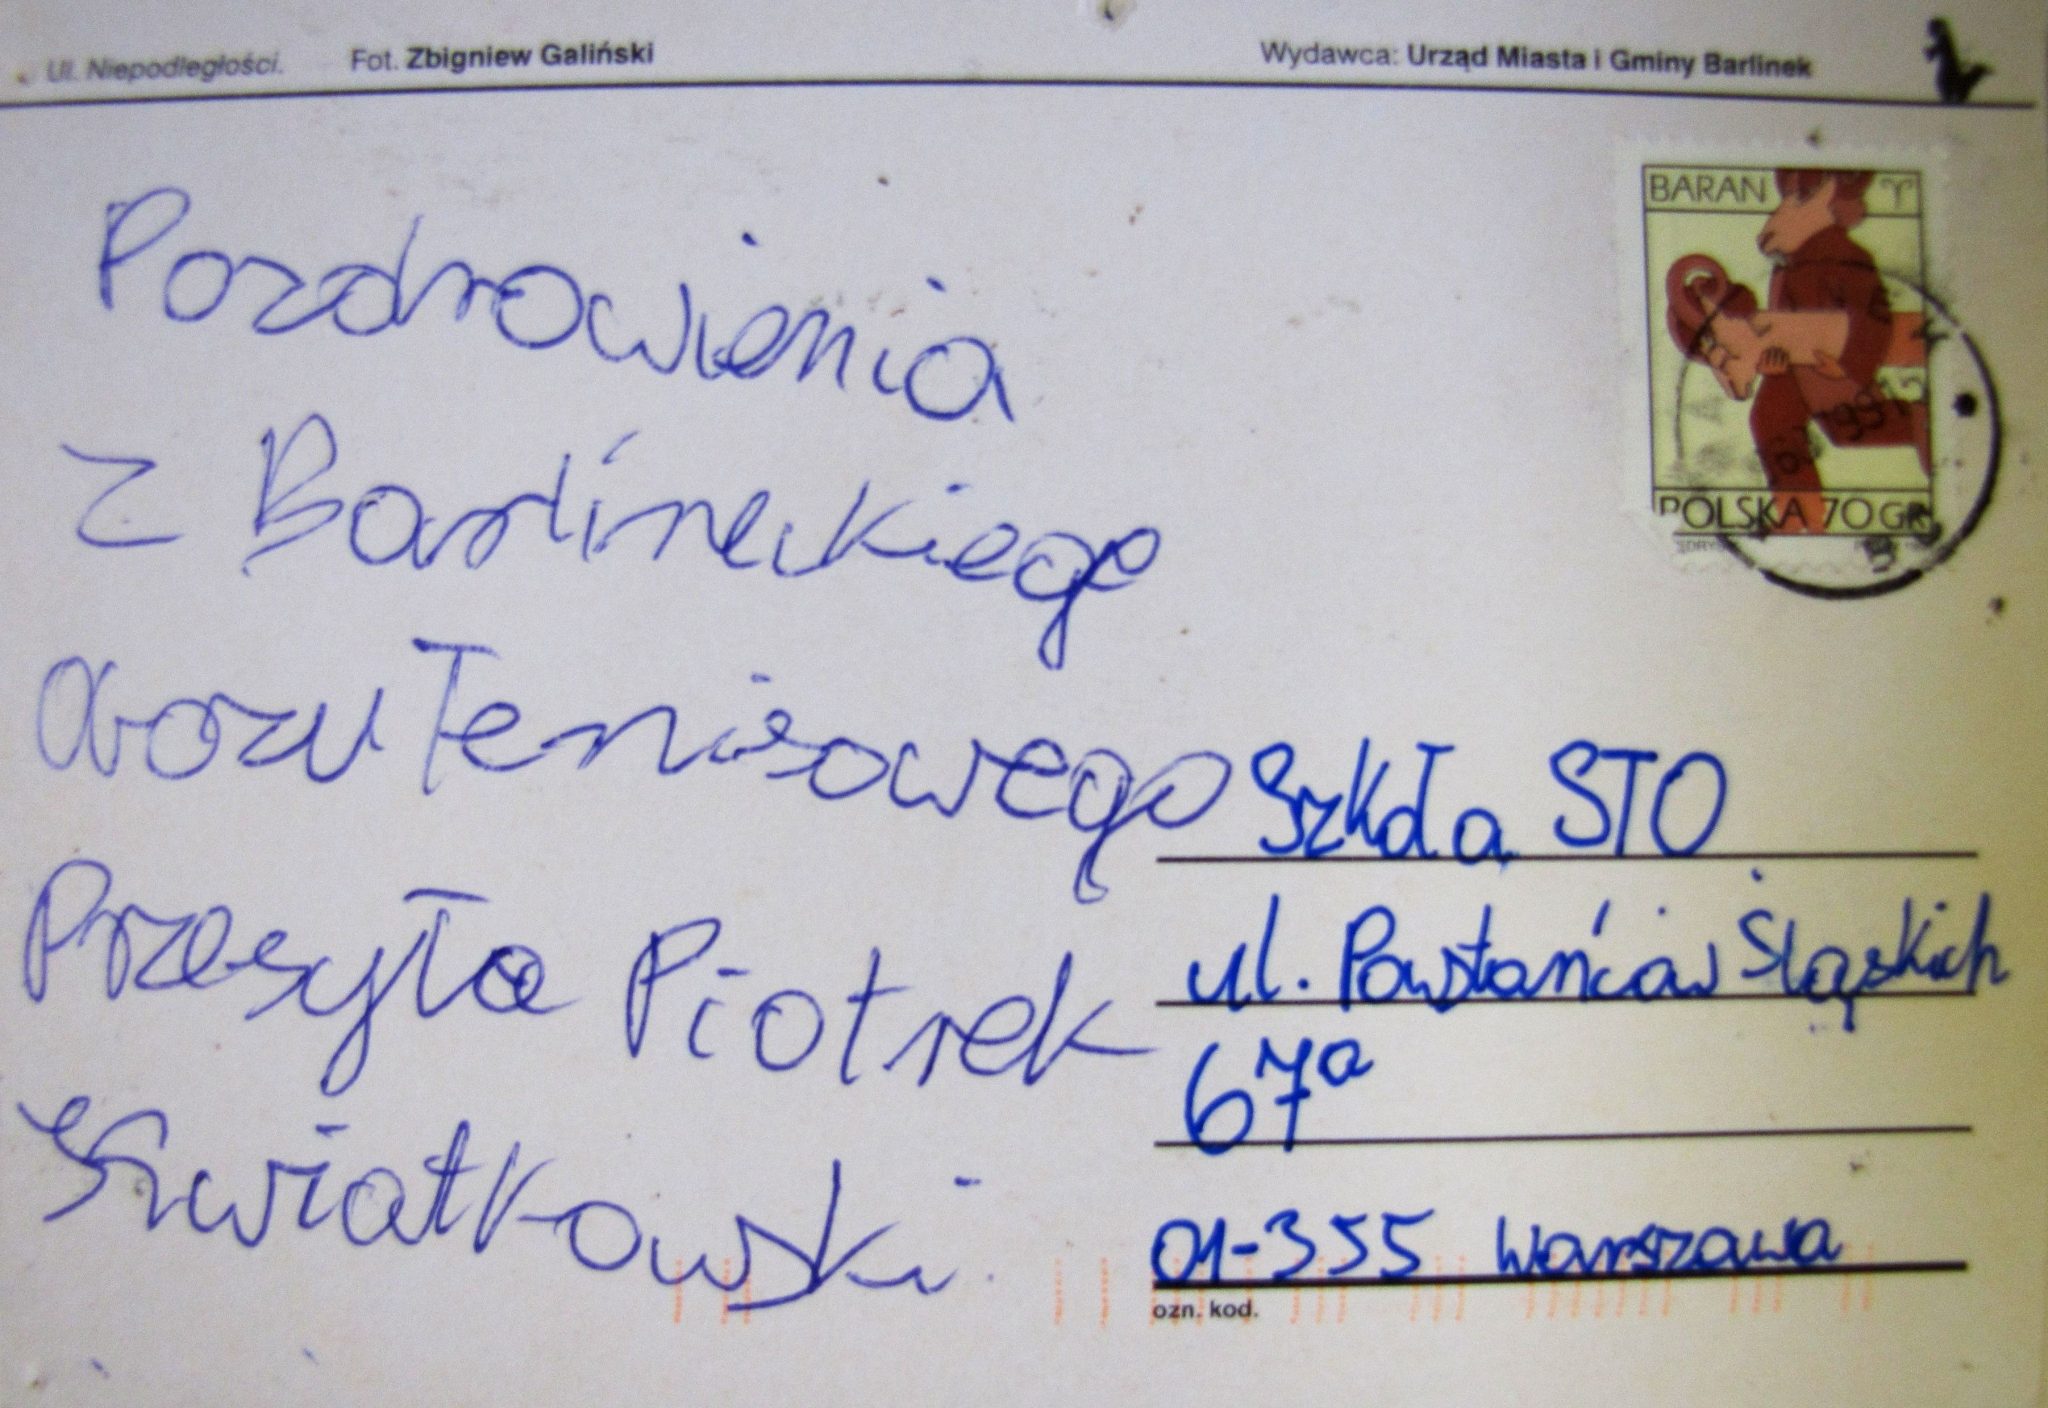 Ul. Niepodległości. Fot. Zbigniew Galiński
Wydawca: Urząd Miasta i Gminy Barlinek
BARAN ♈
POLSKA 70 GR
Pozdrowienia
z Barlineckiego
obozu Tenisowego
Przesyła Piotrek
Kwiatkowski
Szkoła STO
ul. Powstańców Śląskich
67a
01-355 Warszawa
ozn. kod.